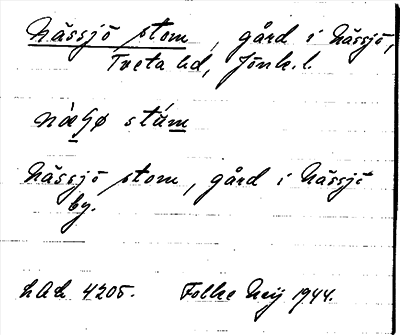 Nässjö stom, gård i Nässjö,
Tveta hd, Jönk. l.
stå̀m
Nässjö stom, gård i Nässjö
by.
LAL 4205. Folke Neij 1944.